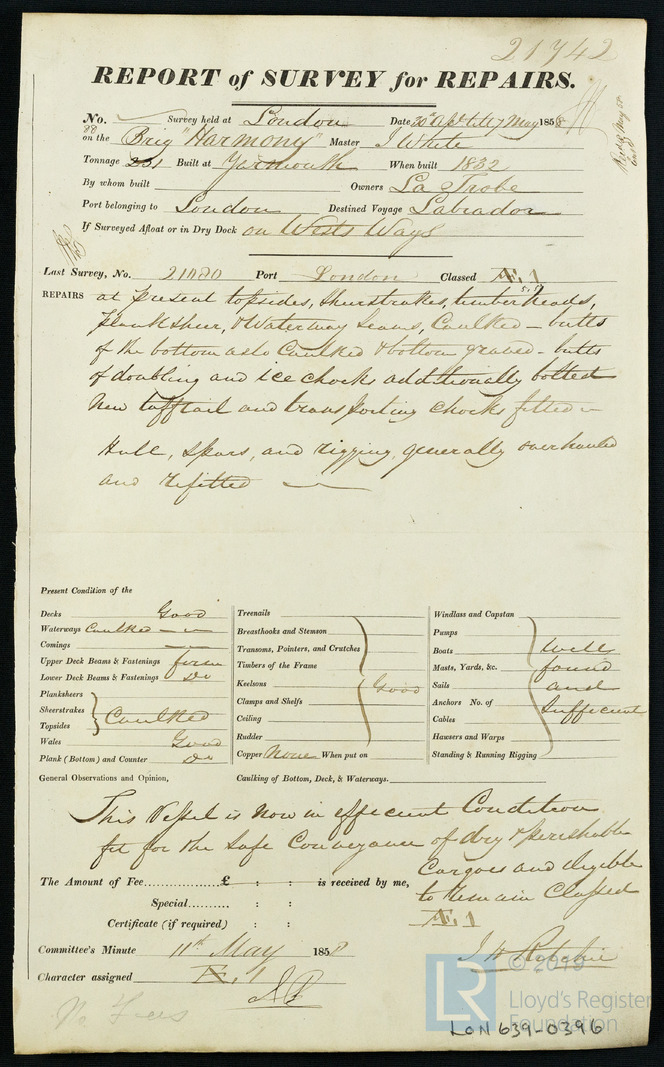 21742
REPORT of SURVEY for REPAIRS.
No. Survey held at London Date 20th Apl till 7 May 1858
88
on the Brig "Harmony" Master J White
Tonnage 251 Built at Yarmouth When built 1832
By whom built Owners La Trobe
Port belonging to London Destined Voyage Labrador
If Surveyed Afloat or in Dry Dock on Wests Ways
Last Survey, No. 21020 Port London Classed Æ.1
5.57
REPAIRS at present topsides, Sheerstrakes, timberheads,
Planksheer, & Waterway Seams, Caulked – butts
of the bottom also Caulked & bottom graved – butts
of doubling and ice chocks additionally bolted
New tafftail and transporting chocks fitted –
Hull, Spars, and rigging, generally overhauled
and refitted
Present Condition of the
Decks Good
Waterways Caulked
Comings
Upper Deck Beams & Fastenings firm
Lower Deck Beams & Fastenings Do
Planksheers
Sheerstrakes Caulked
Topsides
Wales Good
Plank (Bottom) and Counter Do
Treenails
Breasthooks and Stemson
Transoms, Pointers, and Crutches
Timbers of the Frame
Keelsons Good
Clamps and Shelfs
Ceiling
Rudder
Copper None When put on
Windlass and Capstan
Pumps
Boats well
Masts, Yards, &c. found
Sails and
Anchors No. of Sufficient
Cables
Hawsers and Warps
Standing & Running Rigging
General Observations and Opinion, Caulking of Bottom, Deck, & Waterways.
This Vessel is now in efficient Condition
fit for the Safe Conveyance of dry & perishable
Cargoes and eligible
to remain Classed
Æ.1
The Amount of Fee............ £ : : is received by me,
Special......... : :
Certificate (if required) : :
J H Ritchie
Committee's Minute 11th May 1858
Character assigned Æ.1
No Fees
LR © 2019
Lloyd's Register
Foundation
LON 639-0396